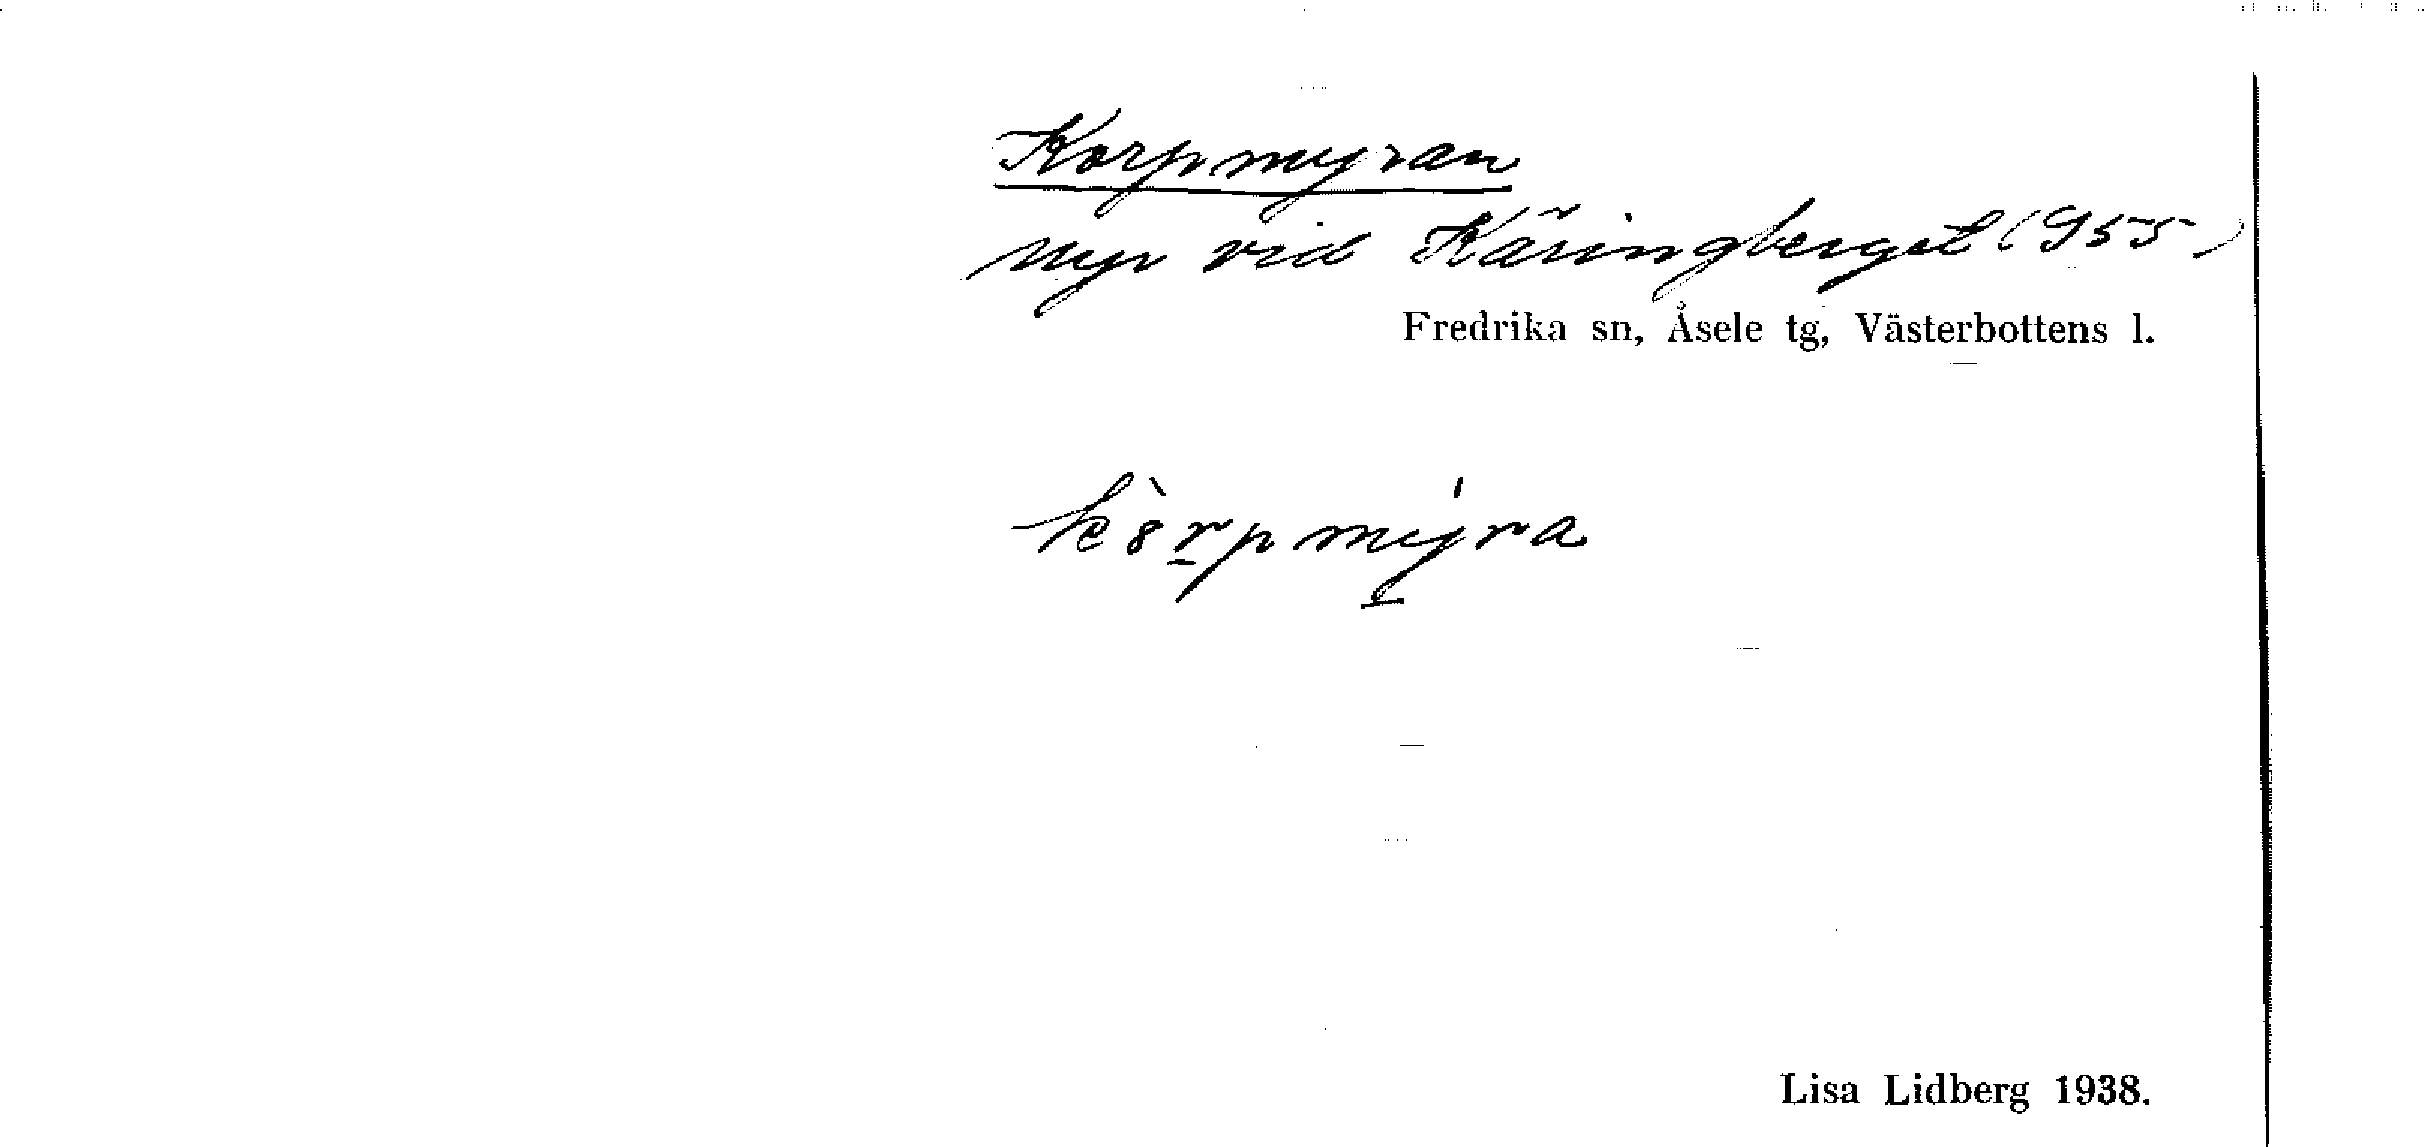 Korpmyran
myr vid Käringberget (955)
Fredrika sn, Åsele tg, Västerbottens l.
kȣ̀r̲pmý̲ra
Lisa Lidberg 1938.